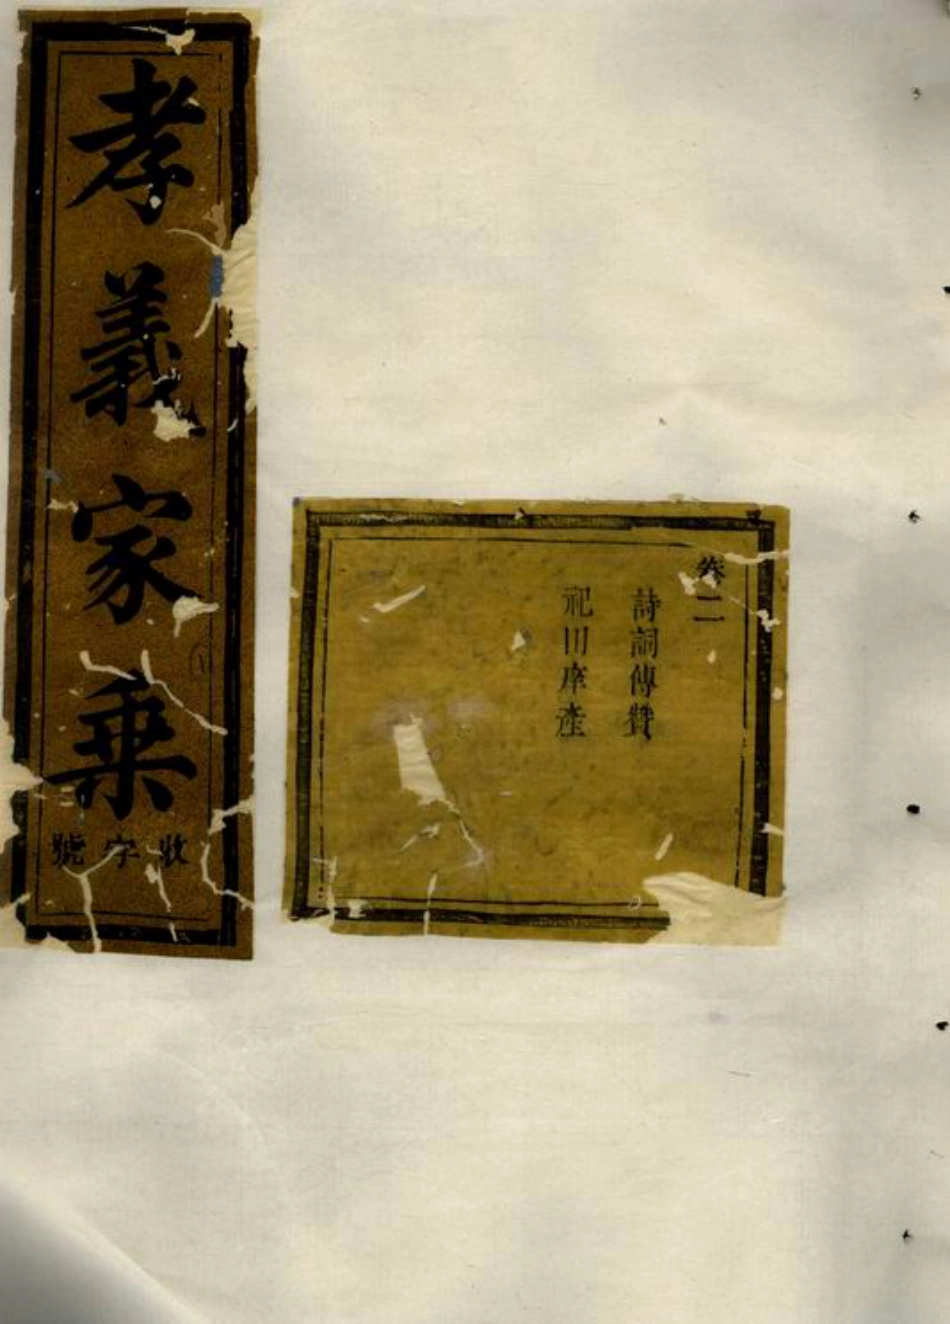 孝義家乘
收字號
卷二
詩詞傳贊
祀田庠產